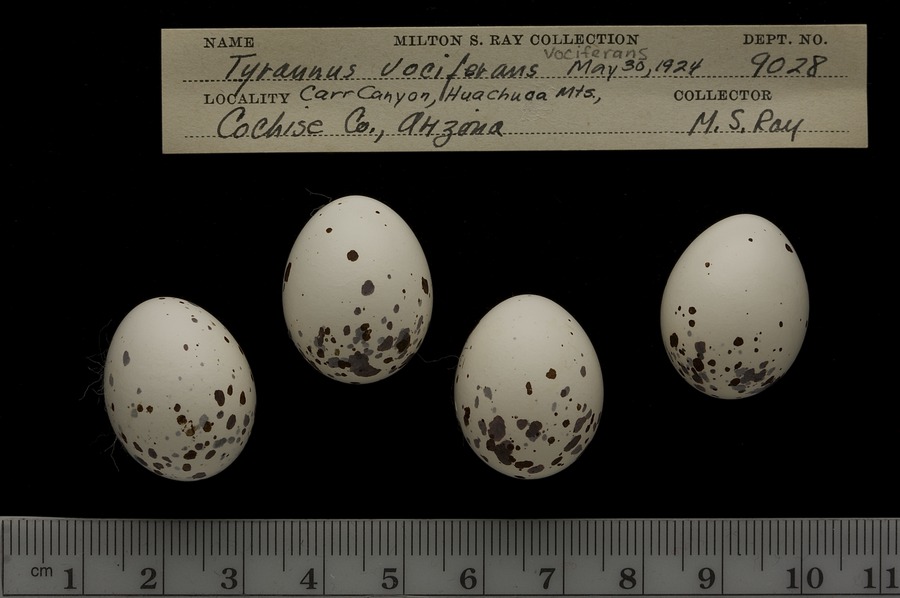 NAME MILTON S. RAY COLLECTION DEPT. NO.
vociferans
Tyrannus vociferans May 30, 1924 9028
LOCALITY Carr Canyon, Huachuca Mts., COLLECTOR
Cochise Co., Arizona M. S. Ray
cm 1 2 3 4 5 6 7 8 9 10 11